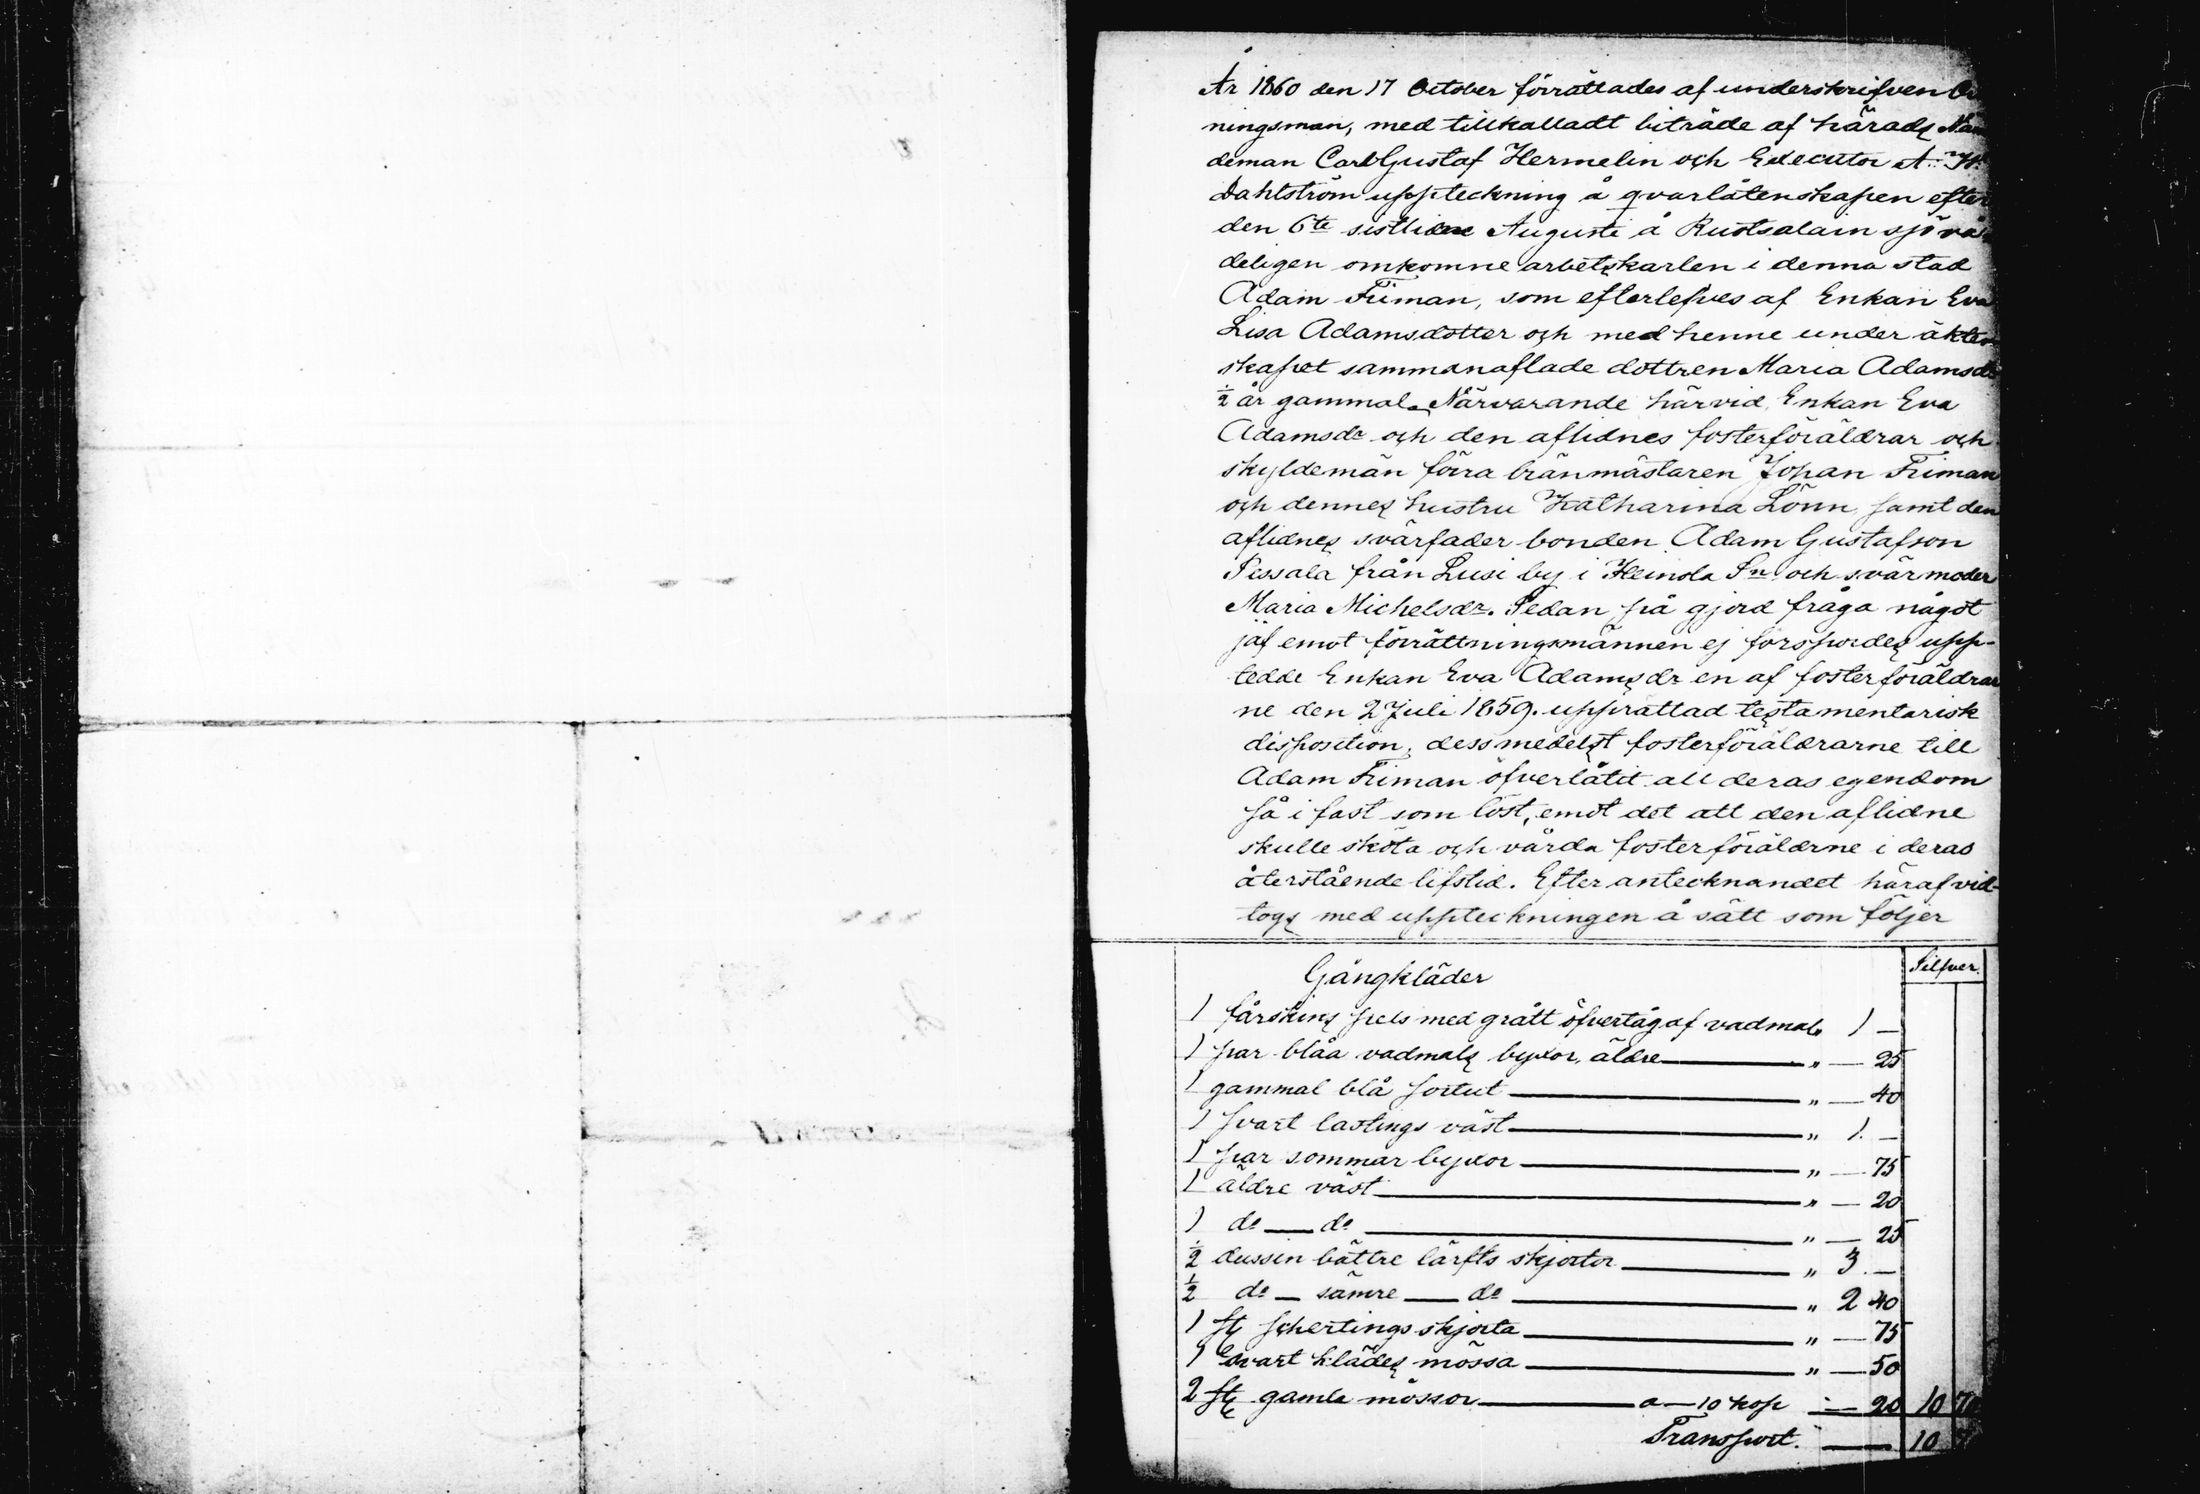 År 1860 den 17 October förrättades af underskrifven
ningsman, med tillkalladt biträde af härads Näm
deman Carl Gustaf Hermelin och Executor A. H.
Dahlström uppteckning å qvarlåtenskapen efter
den 6te sistlidne Augusti å Ruotsalain sjö vå
deligen omkomne arbetskarlen i denna stad
Adam Friman, som efterlefves af Enkan Eva
Lisa Adamsdotter och med henne under äkten
skapet sammanaflade dottren Maria Adamsdr
½ år gammal. Närvarande härvid, Enkan Eva
Adamsdr och den aflidnes fosterföräldrar och
skyldemän förra bränmästaren Johan Friman
och dennes hustru Katharina Lönn, samt den
aflidnes svärfader bonden Adam Gustafson
Pessala från Lusi by i Heinola Sn och svärmoder
Maria Michelsdr. Sedan på gjord fråga något
jäf emot förrättningsmännen ej forspordes upp-
tedde Enkan Eva Adamsdr en af fosterföräldrar
ne den 2 Juli 1859. upprättad testamentarisk
disposition, dessmedelst fosterföräldrarne till
Adam Friman öfverlåtit all deras egendom
så i fast som löst, emot det att den aflidne
skulle sköta och vårda fosterföräldrne i deras
återstående lifstid. Efter antecknandet häraf vid-
togs med uppteckningen å sätt som följer
Silfver.
Gångkläder
1 fårskins pels med grått öfvertåg af vadmal 1 —
1 par blåa vadmals byxor, äldre — " — 25
1 gammal blå sortut — " — 40
1 svart lastings väst — " 1. —
1 par sommar byxor — " — 75
1 äldre väst — " — 20
1 do — do — " — 25
½ dussin bättre lärfts skjortor — " 3. —
½ do — sämre — do — " 2 40
1 st schertings skjorta — " — 75
1 svart klädes mössa — " — 50
2 st gamla mössor — a — 10 kop — 20 10 70
Transport. — 10